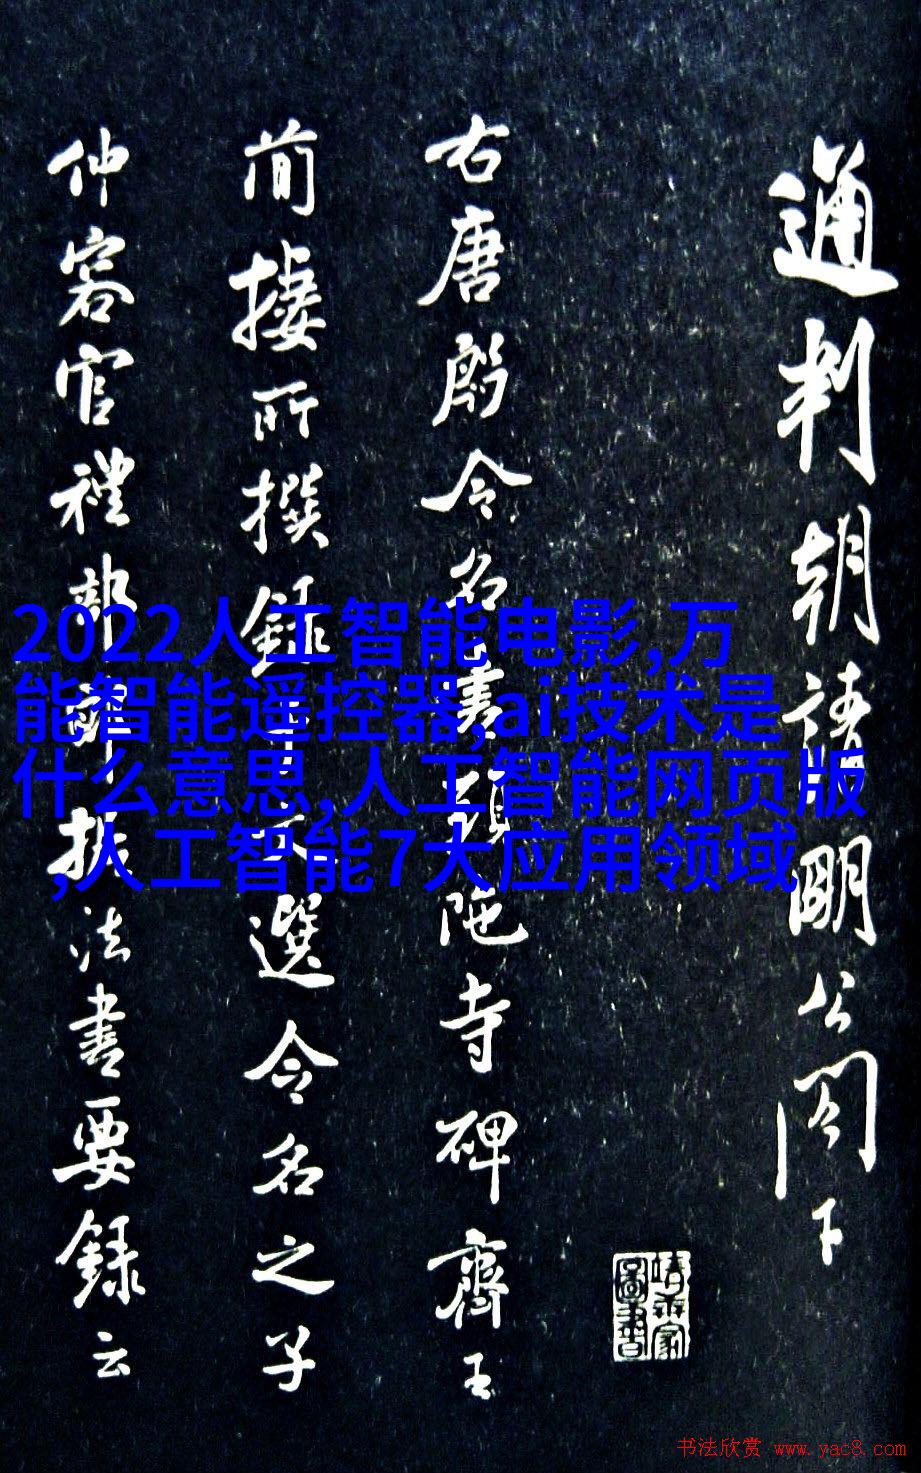 通判朝請明公閣下
右唐殷令名書頭陁寺碑齊王
簡棲所撰錄于文選令名之子
仲容官禮部郎中法書要録云
2022人工智能电影,万
能智能遥控器,ai技术是
什么意思,人工智能网页版
,人工智能7大应用领域
书法欣赏 www.yac8.com